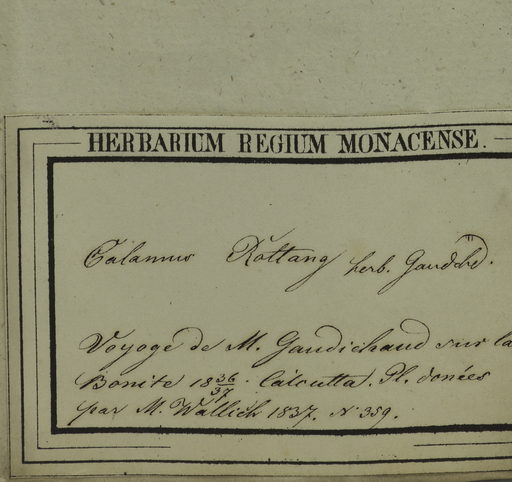 HERBARIUM REGIUM MONACENSE.
Calamus Rottang herb. Gaudichd.
Voyage de M. Gaudichaud sur la
Bonite 18 36/37. Calcutta. Pl. données
par M. Wallich 1837. N 359.